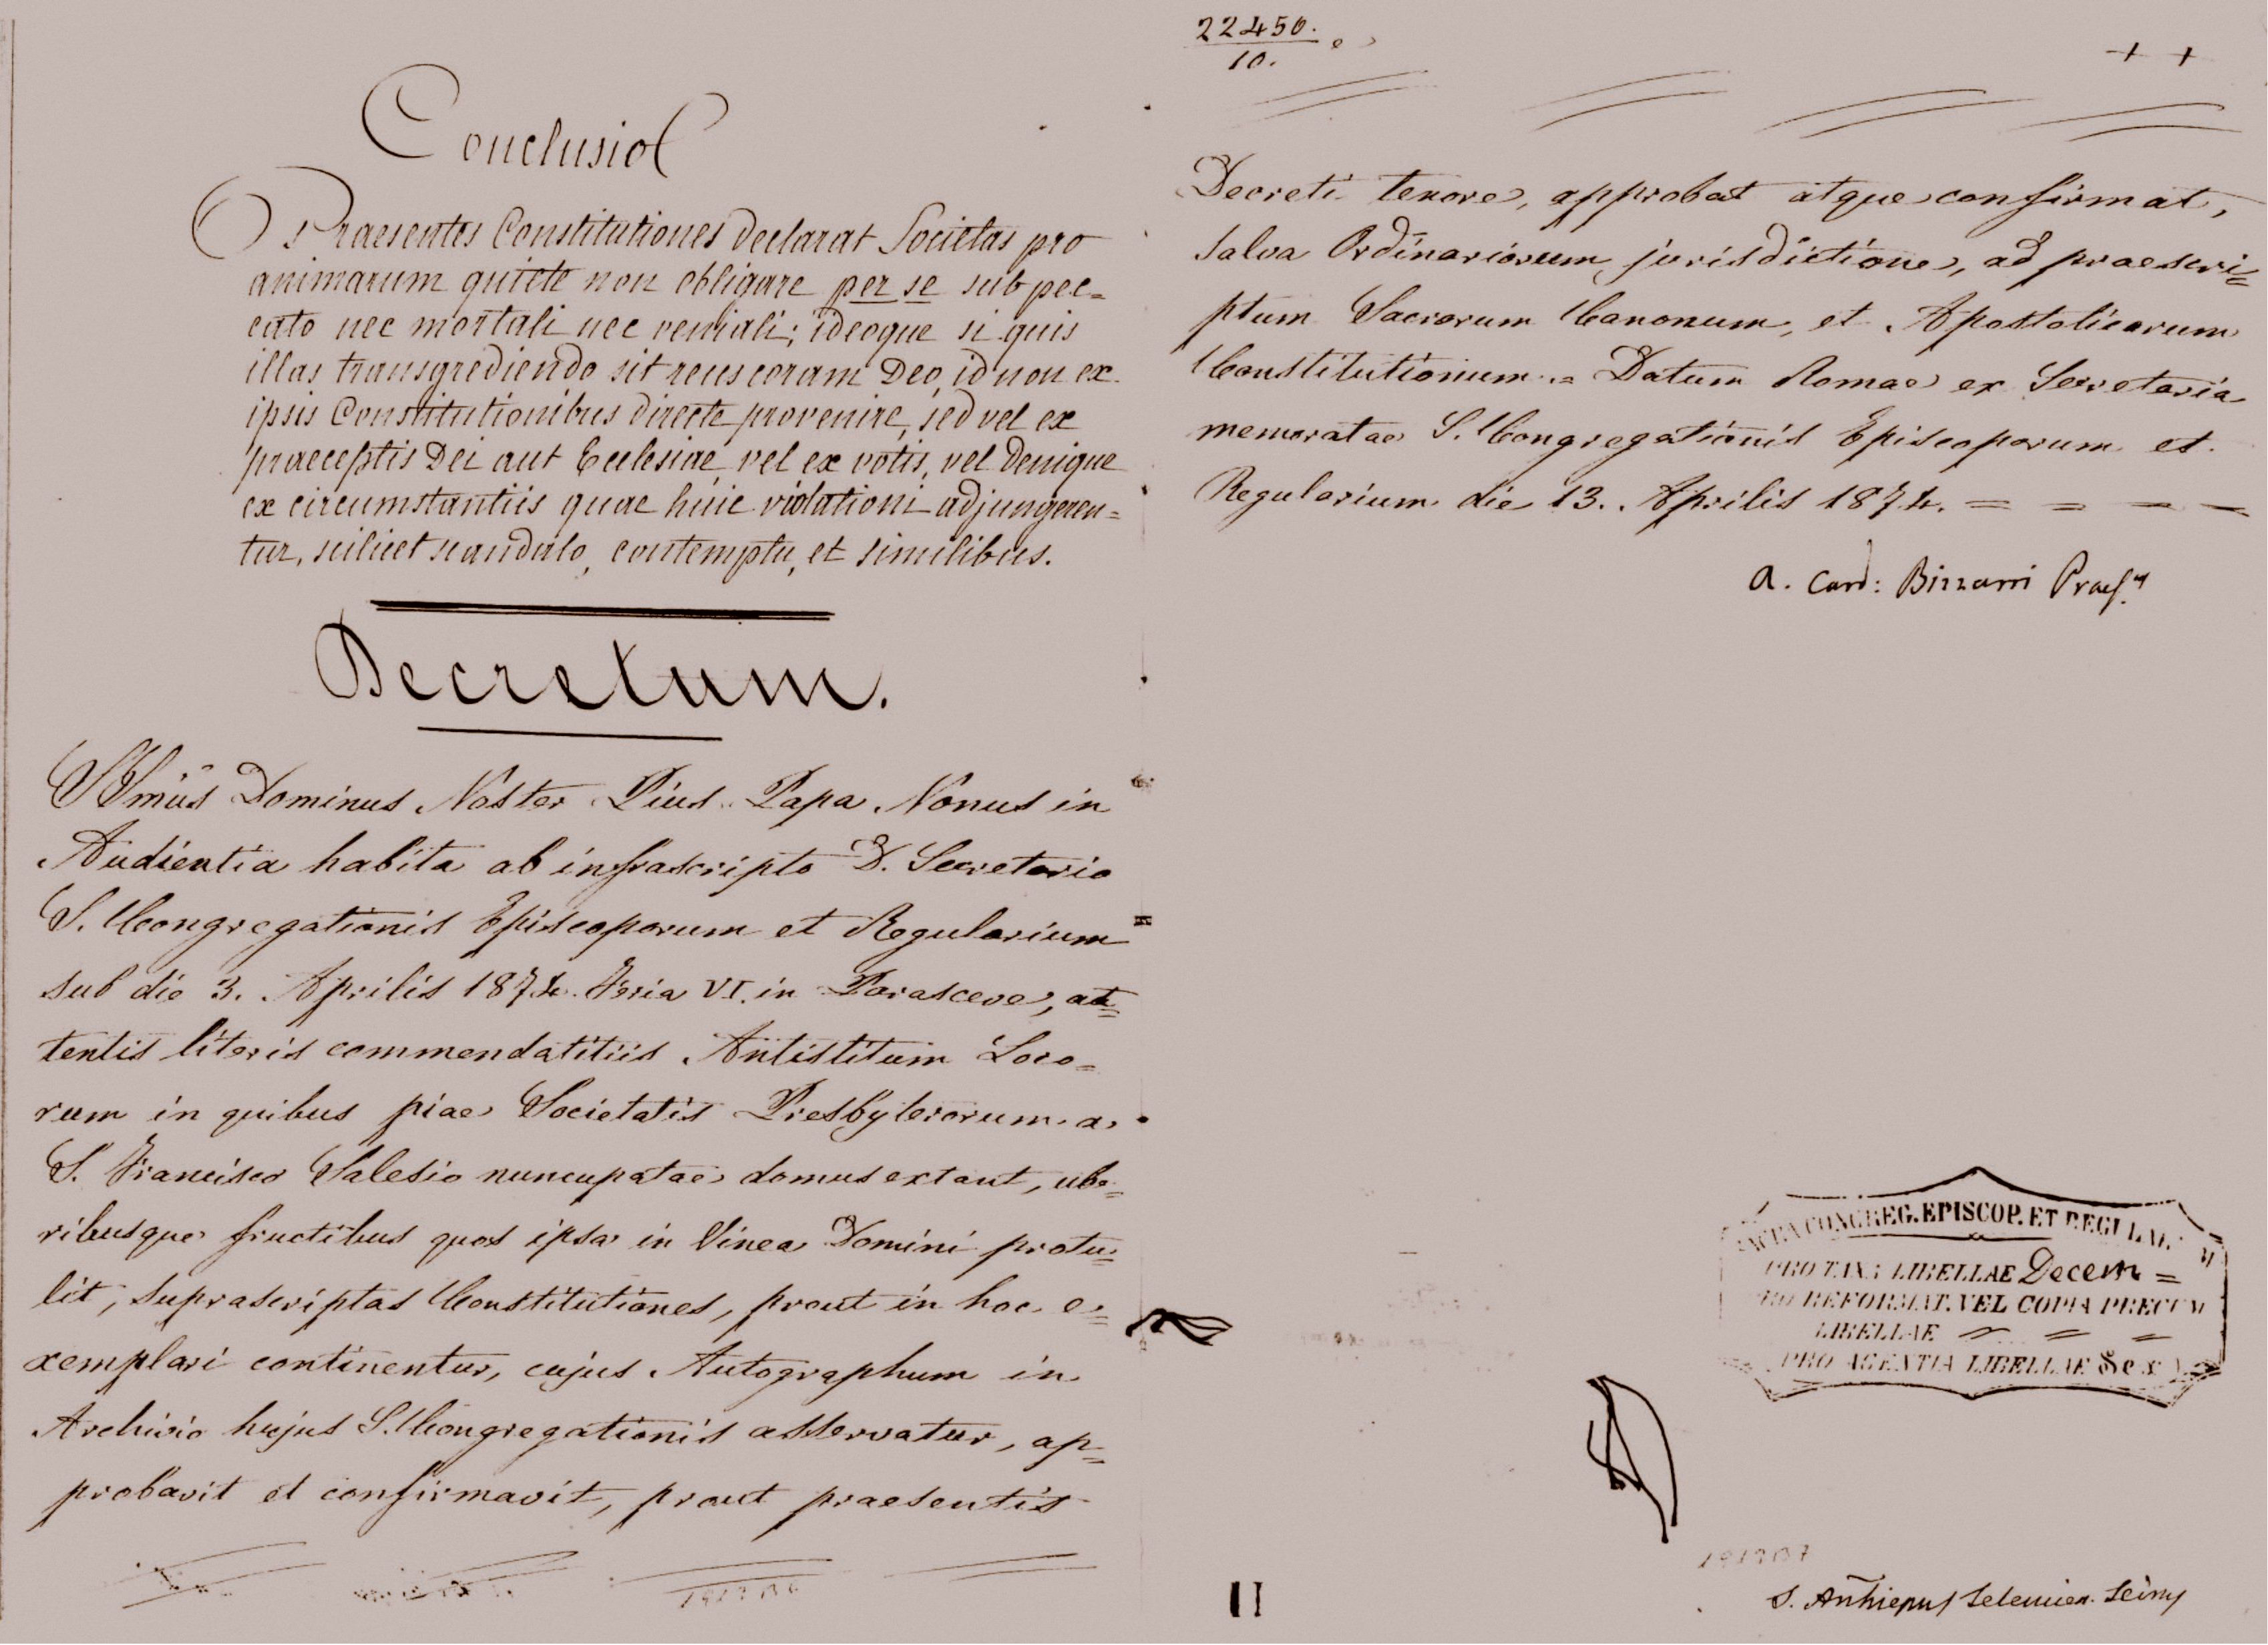 Conclusio
Praesentes Constitutiones declarat Societas pro
animarum quiete non obligare per se sub pec=
cato nec mortali nec veniali; ideoque si quis
illas transgrediendo sit reus coram Deo, id non ex
ipsis Constitutionibus directe provenire, sed vel ex
praeceptis Dei aut Ecclesiae, vel ex votis, vel denique
ex circumstantiis quae huic violationi adjungeren=
tur, scilicet scandalo, contemptu, et similibus.
Decretum.
SSmus Dominus Noster Pius Papa Nonus in
Audientia habita ab infrascripto D. Secretario
S. Congregationis Episcoporum et Regularium
sub die 3. Aprilis 1874. Feria VI. in Parasceve, at=
tentis literis commendatitiis Antistitum Loco=
rum in quibus piae Societatis Presbyterorum a
S. Francisco Salesio nuncupatae domus extant, ube=
ribusque fructibus quos ipsa in Vinea Domini protu=
lit, suprascriptas Constitutiones, prout in hoc e=
xemplari continentur, cujus Autographum in
Archivio hujus S. Congregationis asservatur, ap=
probavit et confirmavit, prout praesentis
22450.
10.
+ +
Decreti tenore, approbat atque confirmat,
salva Ordinariorum jurisdictione, ad praescri=
ptum Sacrorum Canonum, et Apostolicarum
Constitutionum. = Datum Romae ex Secretaria
memoratae S. Congregationis Episcoporum et
Regularium die 13. Aprilis 1874. = = = =
A. Card: Bizzarri Praef.
CONGREG. EPISCOP. ET REGULAR
PRO TAXA LIBELLAE Decem =
PRO REFORMAT. VEL COPIA PRECUM
LIBELLAE = = =
PRO AGENTIA LIBELLAE Sex
II
S. Archiepus Seleucien. Secrius